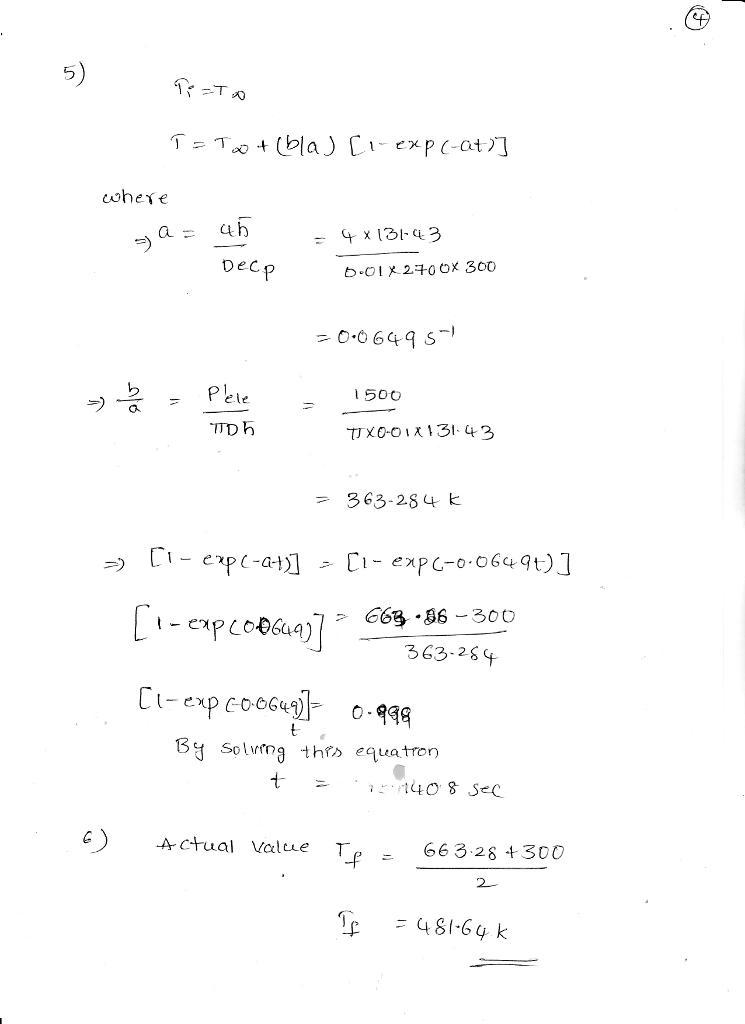 4
5)
Ti = T∞
T = T∞ + (b/a) [1 - exp(-at)]
where
⇒ a = 4h̄ / Dρcp = 4 x 131.43 / 0.01 x 2700 x 300
= 0.0649 s⁻¹
⇒ b/a = P'ele / πDh̄ = 1500 / πx0.01x131.43
= 363.284 k
⇒ [1 - exp(-at)] = [1 - exp(-0.0649t)]
[1 - exp(0.0649)] = - 300 / 363.284
[1 - exp(-0.0649)] = 0.999
t
By solving this equation
t = 8 sec
6) Actual Value Tf = 663.28 + 300 / 2
Tf = 481.64 k